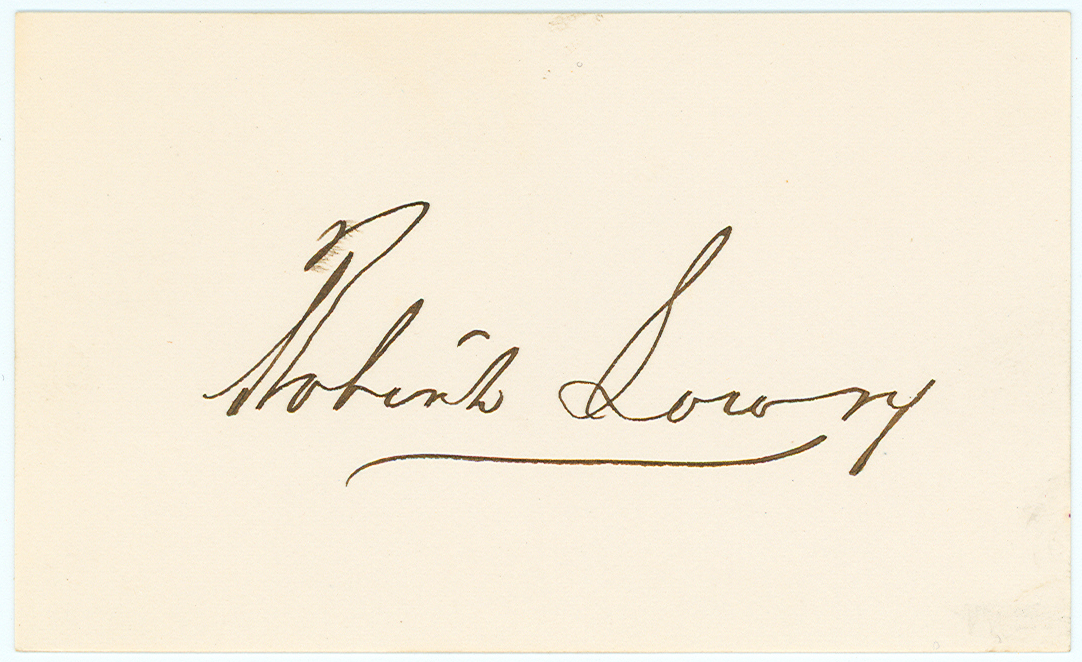 Robert Lowry